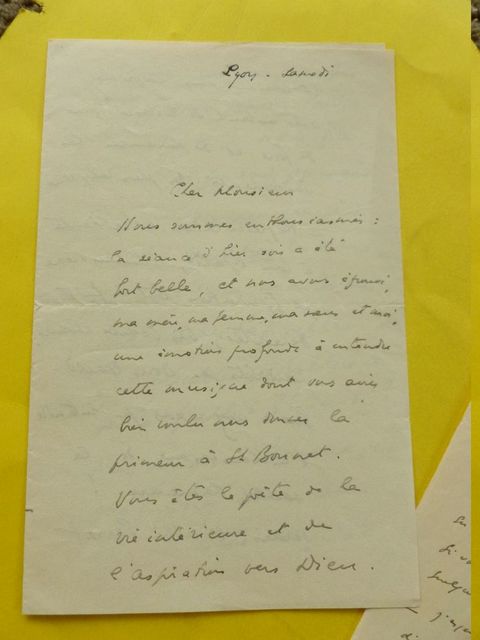 Lyon - Samedi
Cher Monsieur
Nous sommes enthousiasmés :
la séance d'hier soir a été
fort belle, et nous avons éprouvé,
ma mère, ma femme, ma sœur et moi,
une émotion profonde à entendre
cette musique dont vous aviez
bien voulu nous donner la
primeur à St Bonnet.
Vous êtes le poète de la
vie intérieure et de
l'aspiration vers Dieu.